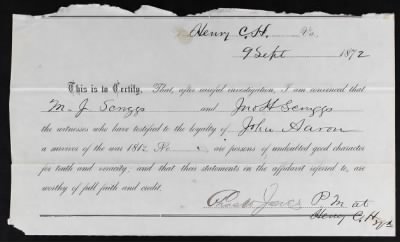 Henry C.H. Va.
9 Sept 1872
This is to Certify, That, after careful investigation, I am convinced that
M. J. Scruggs and Jno H Scruggs
the witnesses who have testified to the loyalty of John Aaron
a survivor of the war 1812, No. are persons of undoubted good character
for truth and veracity; and that their statements in the affidavit referred to, are
worthy of full faith and credit.
Jones P.M. at
Henry C.H.